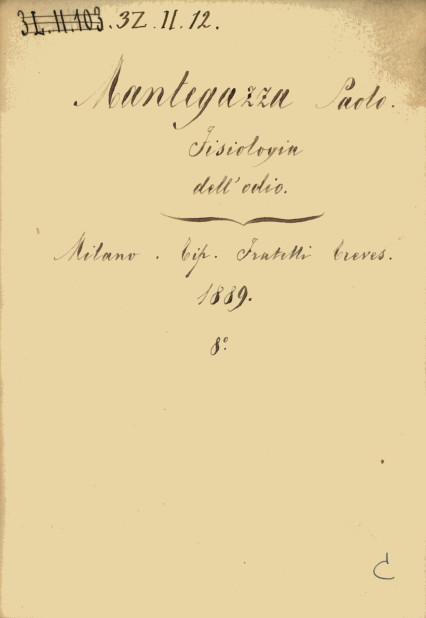 3L.II.103. 3Z.II.12.
Mantegazza Paolo.
Fisiologia
dell'odio.
Milano. Tip. Fratelli Treves.
1889.
8º.
C